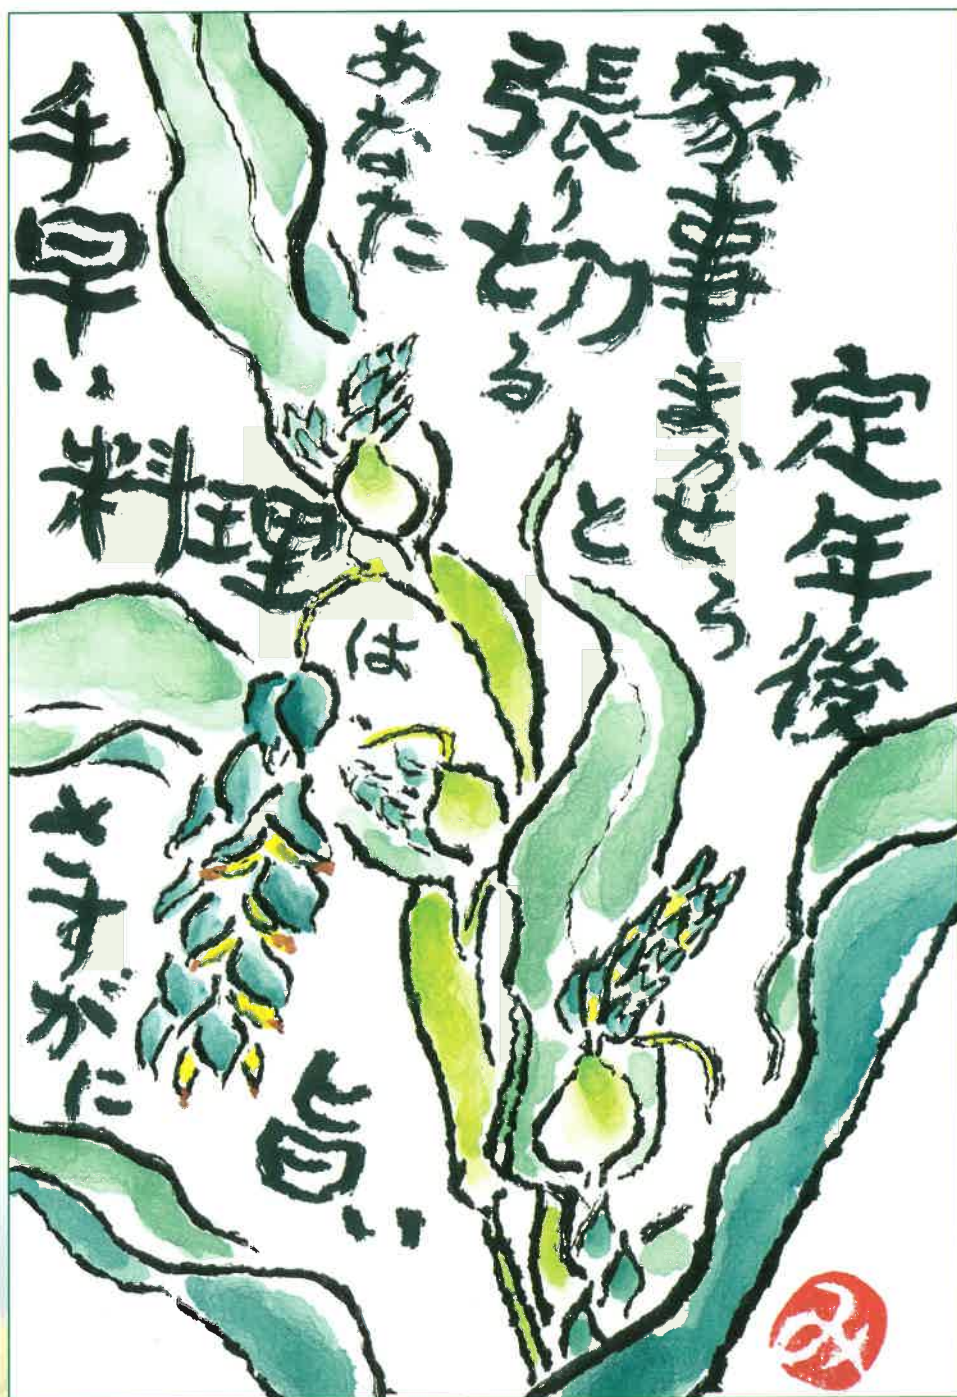 定年後
家事まかせろ
と
張り切る
あなた
手早い
料理
は
さすがに
旨い